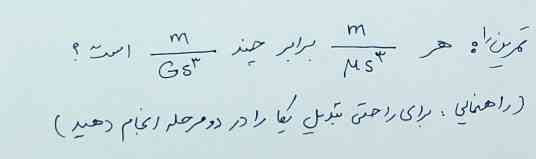 تمرین ۱: هر m/μs³ برابر چند m/Gs³ است؟
(راهنمایی: برای راحتی تبدیل یکا را در دو مرحله انجام دهید)